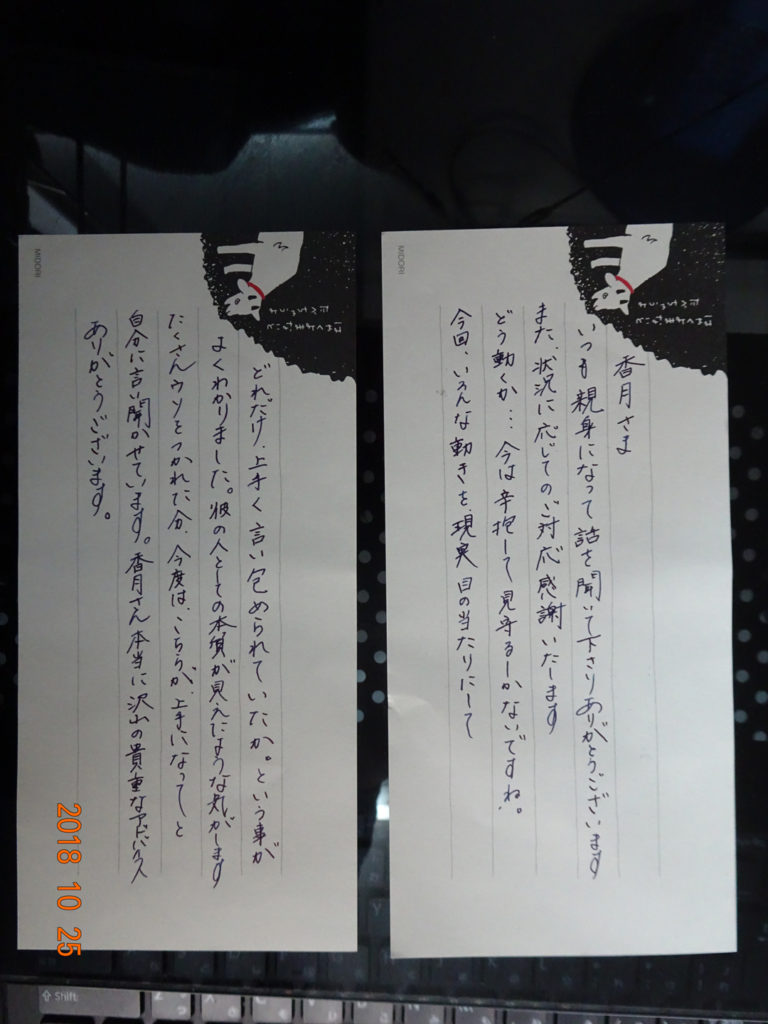 香月さま
いつも親身になって話を聞いて下さりありがとうございます
また、状況に応じてのご対応感謝いたします
どう動くか…今は辛抱して見守るしかないですね。
今回、いろんな動きを、現実目の当たりにして
MIDORI
どれだけ、上手く言い包められていたか。という事が
よくわかりました。彼の人としての本質が見えたような気がします
たくさんウソをつかれた分、今度は、こちらが、上手になってしと
自分に言い聞かせています。香月さん本当に沢山の貴重なアドバイス
ありがとうございます。
MIDORI
2018 10 25
Shift